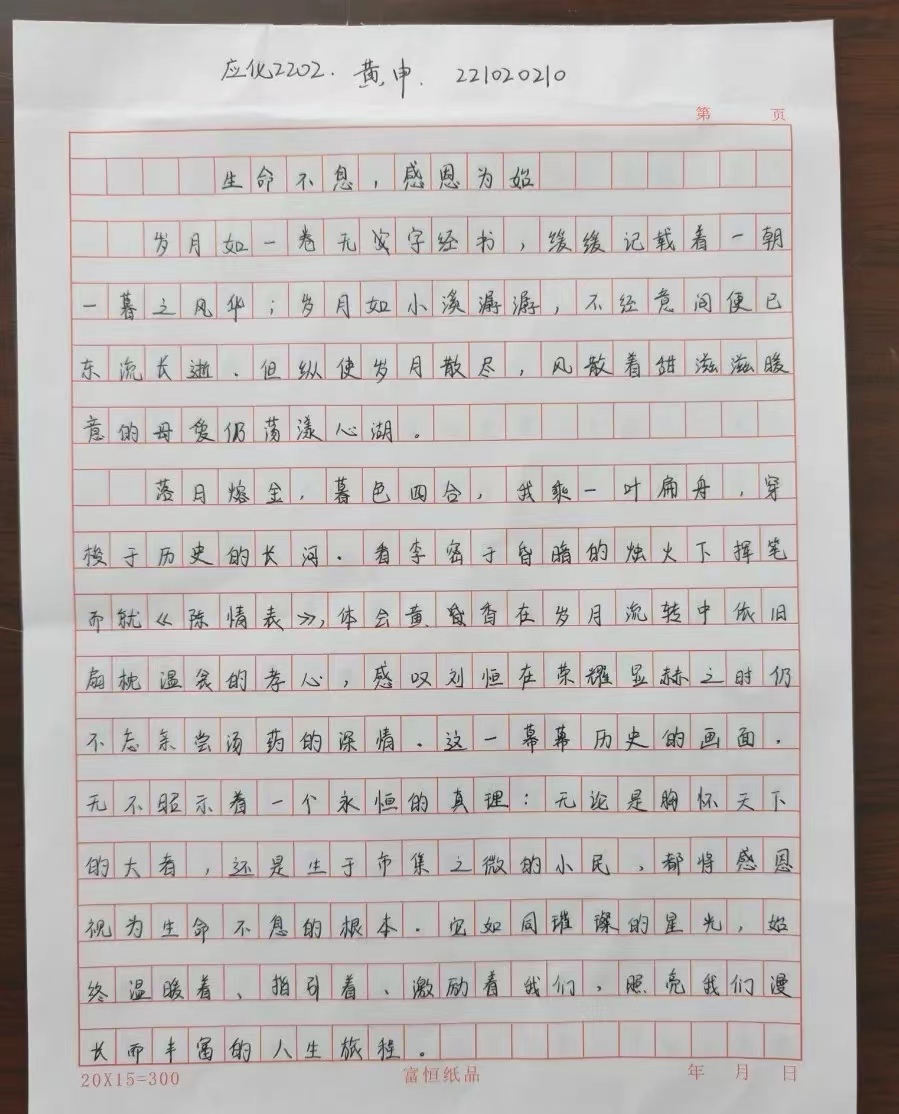 应化2202. 黄申. 221020210
第 页
生命不息，感恩为始
岁月如一卷无安字经书，缓缓记载着一朝
一暮之风华；岁月如小溪潺潺，不经意间便已
东流长逝.但纵使岁月散尽，风散着甜滋滋暖
意的母爱仍荡漾心湖。
落月熔金，暮色四合，我乘一叶扁舟，穿
梭于历史的长河.看李密于昏暗的烛火下挥笔
而就《陈情表》，体会黄香在岁月流转中依旧
扇枕温衾的孝心，感叹刘恒在荣耀显赫之时仍
不忘亲尝汤药的深情.这一幕幕历史的画面.
无不昭示着一个永恒的真理：无论是胸怀天下
的大者，还是生于市集之微的小民、都将感恩
视为生命不息的根本.它如同璀璨的星光，始
终温暖着、指引着、激励着我们，照亮我们漫
长而丰富的人生旅程。
20X15=300
富恒纸品
年 月 日